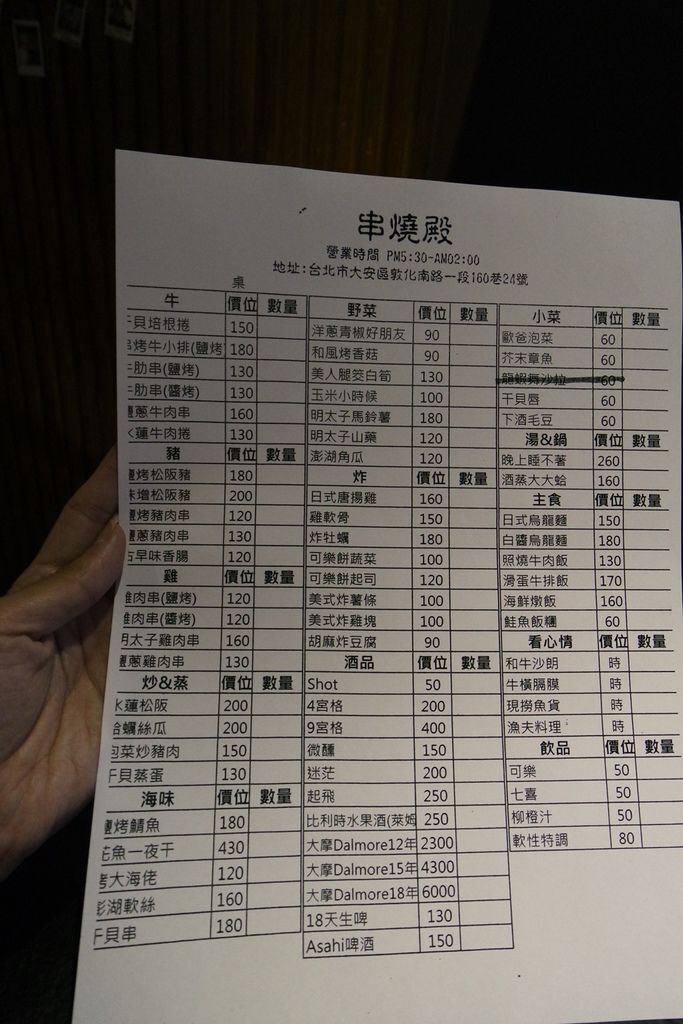 串燒殿
營業時間 PM5:30-AM02:00
地址:台北市大安區敦化南路一段160巷24號
桌
牛 價位 數量
貝培根捲 150
烤牛小排(鹽烤 180
肋串(鹽烤) 130
肋串(醬烤) 130
蔥牛肉串 160
蓮牛肉捲 130
豬 價位 數量
烤松阪豬 180
增松阪豬 200
烤豬肉串 120
蔥豬肉串 130
早味香腸 120
雞 價位 數量
肉串(鹽烤) 120
肉串(醬烤) 120
太子雞肉串 160
蔥雞肉串 130
炒&蒸 價位 數量
蓮松阪 200
蠣絲瓜 200
菜炒豬肉 150
貝蒸蛋 130
海味 價位 數量
烤鯖魚 180
魚一夜干 430
大海佬 120
湖軟絲 160
貝串 180
野菜 價位 數量
洋蔥青椒好朋友 90
和風烤香菇 90
美人腿筊白筍 130
玉米小時候 100
明太子馬鈴薯 180
明太子山藥 120
澎湖角瓜 120
炸 價位 數量
日式唐揚雞 160
雞軟骨 150
炸牡蠣 180
可樂餅蔬菜 100
可樂餅起司 120
美式炸薯條 100
美式炸雞塊 100
胡麻炸豆腐 90
酒品 價位 數量
Shot 50
4宮格 200
9宮格 400
微醺 150
迷茫 200
起飛 250
比利時水果酒(萊姆 250
大摩Dalmore12年 2300
大摩Dalmore15年 4300
大摩Dalmore18年 6000
18天生啤 130
Asahi啤酒 150
小菜 價位 數量
歐爸泡菜 60
芥末章魚 60
龍蝦舞沙拉 60
干貝唇 60
下酒毛豆 60
湯&鍋 價位 數量
晚上睡不著 260
酒蒸大大蛤 160
主食 價位 數量
日式烏龍麵 150
白醬烏龍麵 180
照燒牛肉飯 130
滑蛋牛排飯 170
海鮮燉飯 160
鮭魚飯糰 60
看心情 價位 數量
和牛沙朗 時
牛橫膈膜 時
現撈魚貨 時
漁夫料理 時
飲品 價位 數量
可樂 50
七喜 50
柳橙汁 50
軟性特調 80